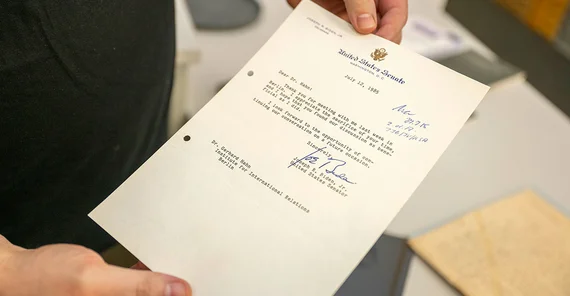 United States Senate
WASHINGTON, D.C.
July 12, 1985
Dear Dr. Hahn:
Thank you for meeting with me last week in
Berlin. I appreciate the sacrifice in your time
and I hope that you found our discussion as bene-
ficial as I did.
I look forward to the opportunity of con-
tinuing our conversation on a future occasion.
Sincerely,
Joseph R. Biden, Jr.
United States Senator
Dr. Gerhard Hahn
Institute for International Relations
Berlin